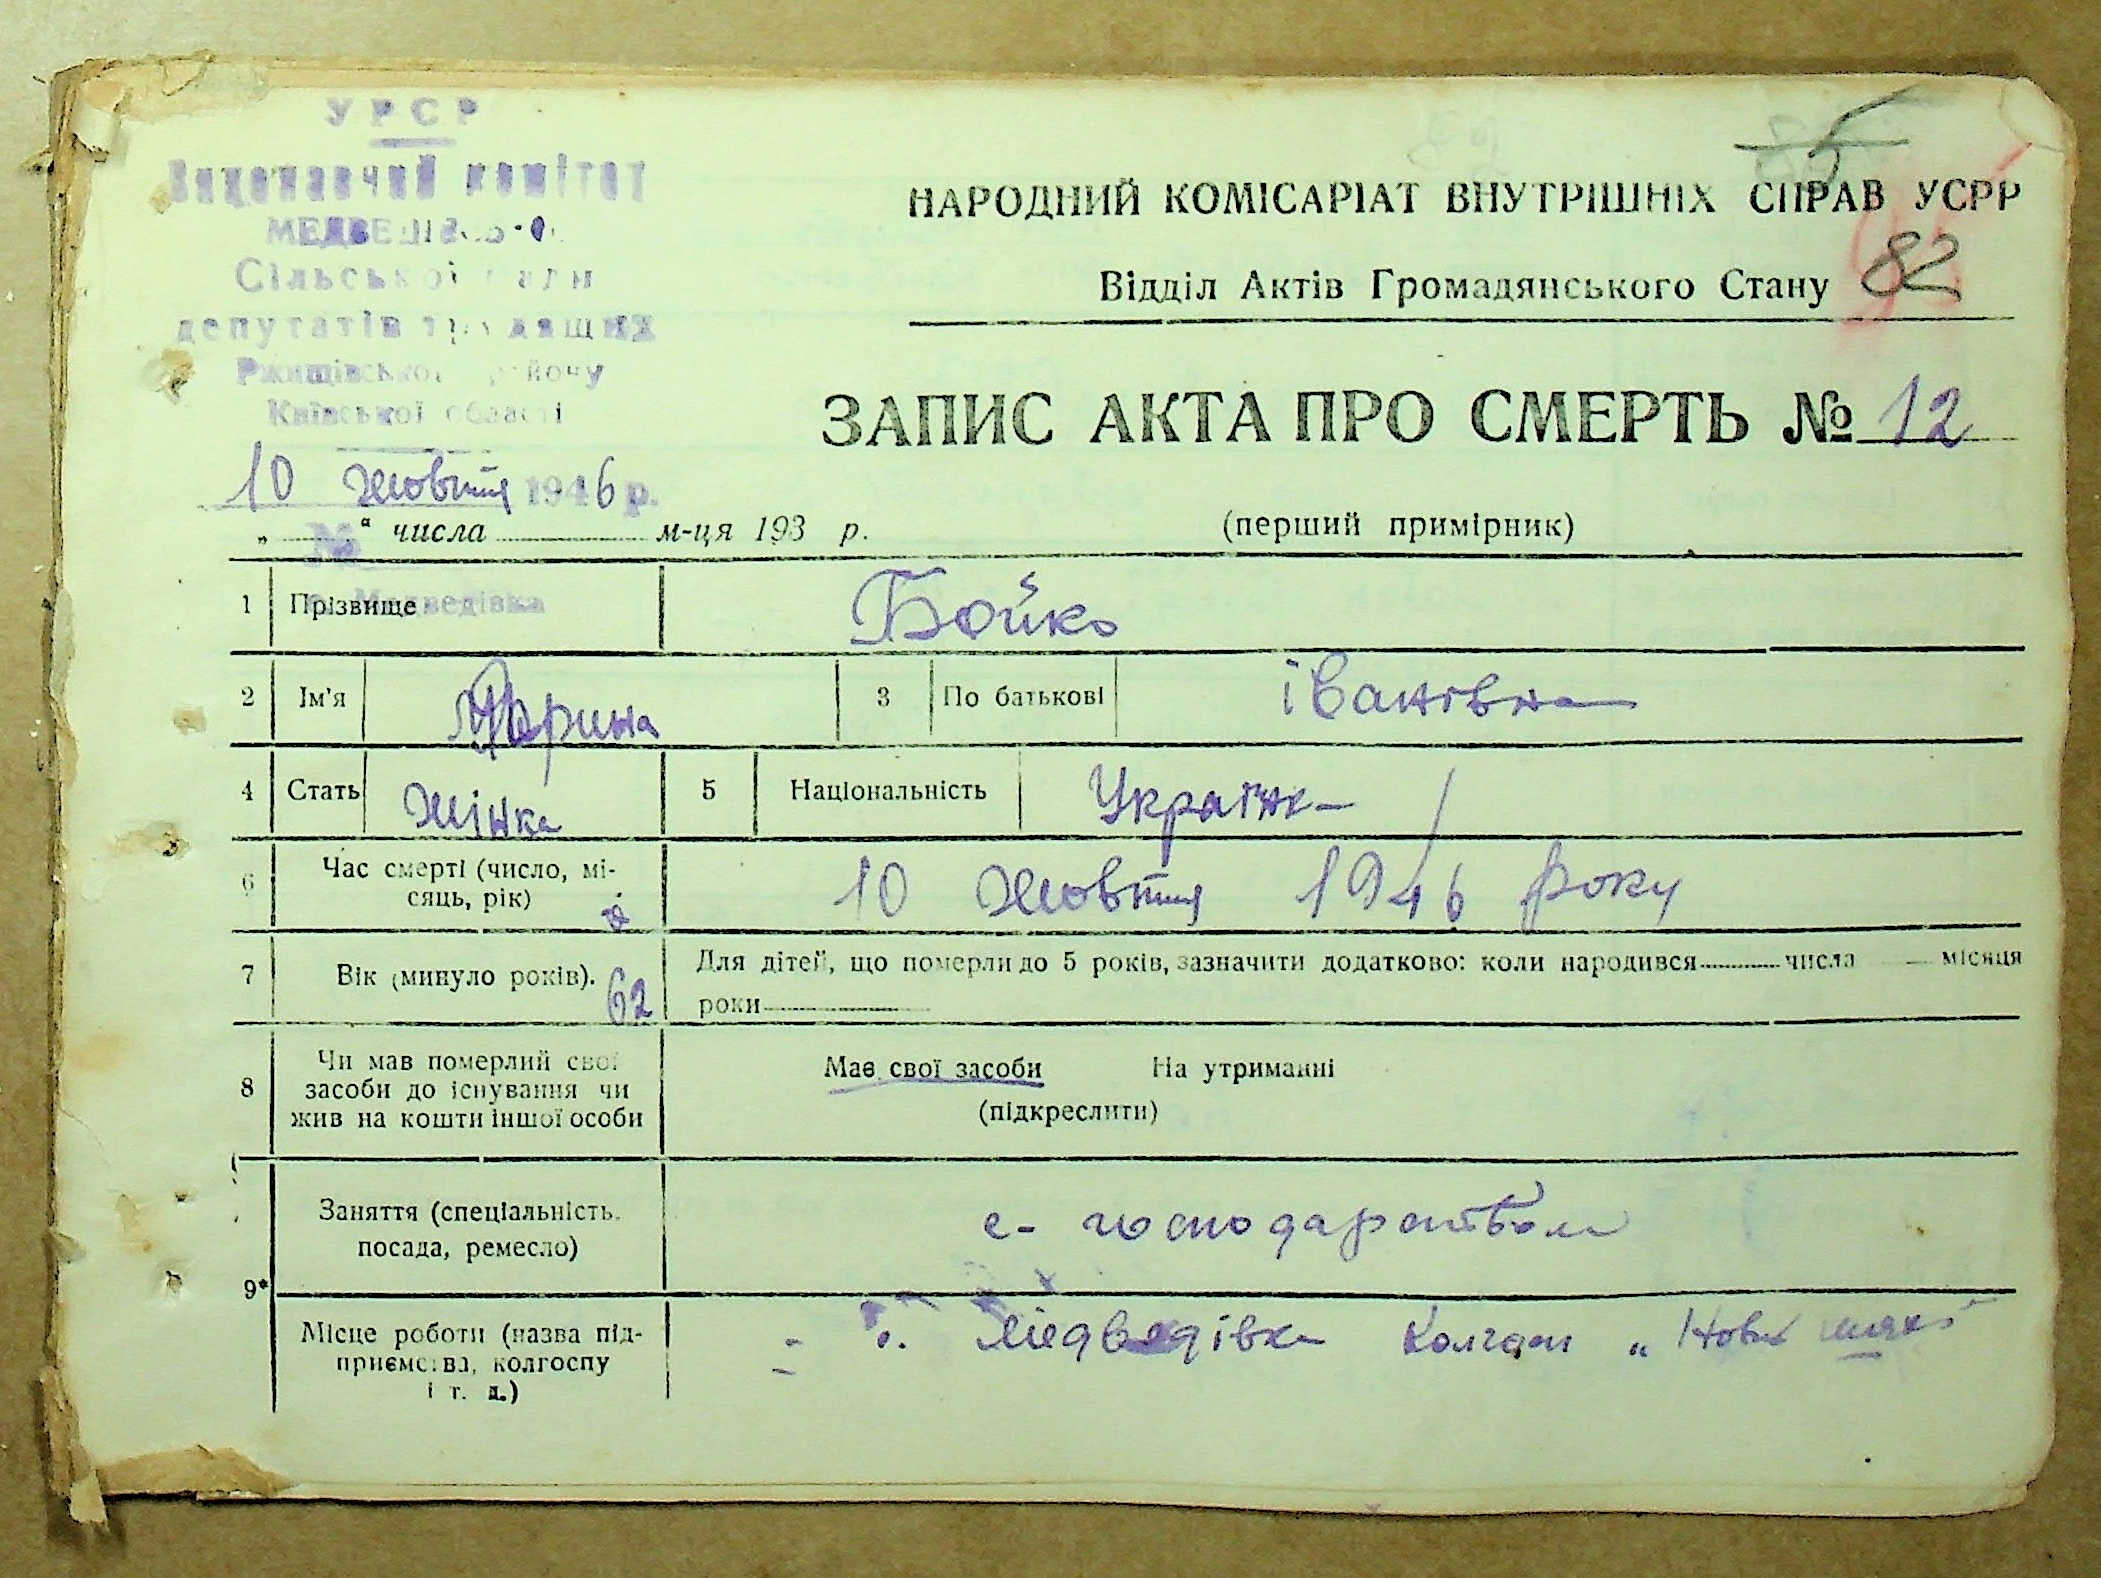 УРСР
Виконавчий комітет
Сільської Ради
депутатів трудящих
Ржищівського району
Київської області
10 жовтня 1946 р.
№
с. Медведівка
5
НАРОДНИЙ КОМІСАРІАТ ВНУТРІШНІХ СПРАВ УСРР
Відділ Актів Громадянського Стану 82
ЗАПИС АКТА ПРО СМЕРТЬ № 12
„ “ числа м-ця 193 р.
(перший примірник)
1 Прізвище Бойко
2 Ім'я Марина 3 По батькові іванівна
4 Стать жінка 5 Національність Україн-
6 Час смерті (число, мі-
сяць, рік) 10 жовтня 1946 року
7 Вік (минуло років). 62 Для дітей, що померли до 5 років, зазначити додатково: коли народився числа місяця
роки
8 Чи мав померлий свої
засоби до існування чи
жив на кошти іншої особи
Має свої засоби На утриманні
(підкреслити)
9*
Заняття (спеціальність.
посада, ремесло) с-господарством
Місце роботи (назва під-
приємства, колгоспу
і т. д.)
с. Медведівка Колгосп „Новий шлях"